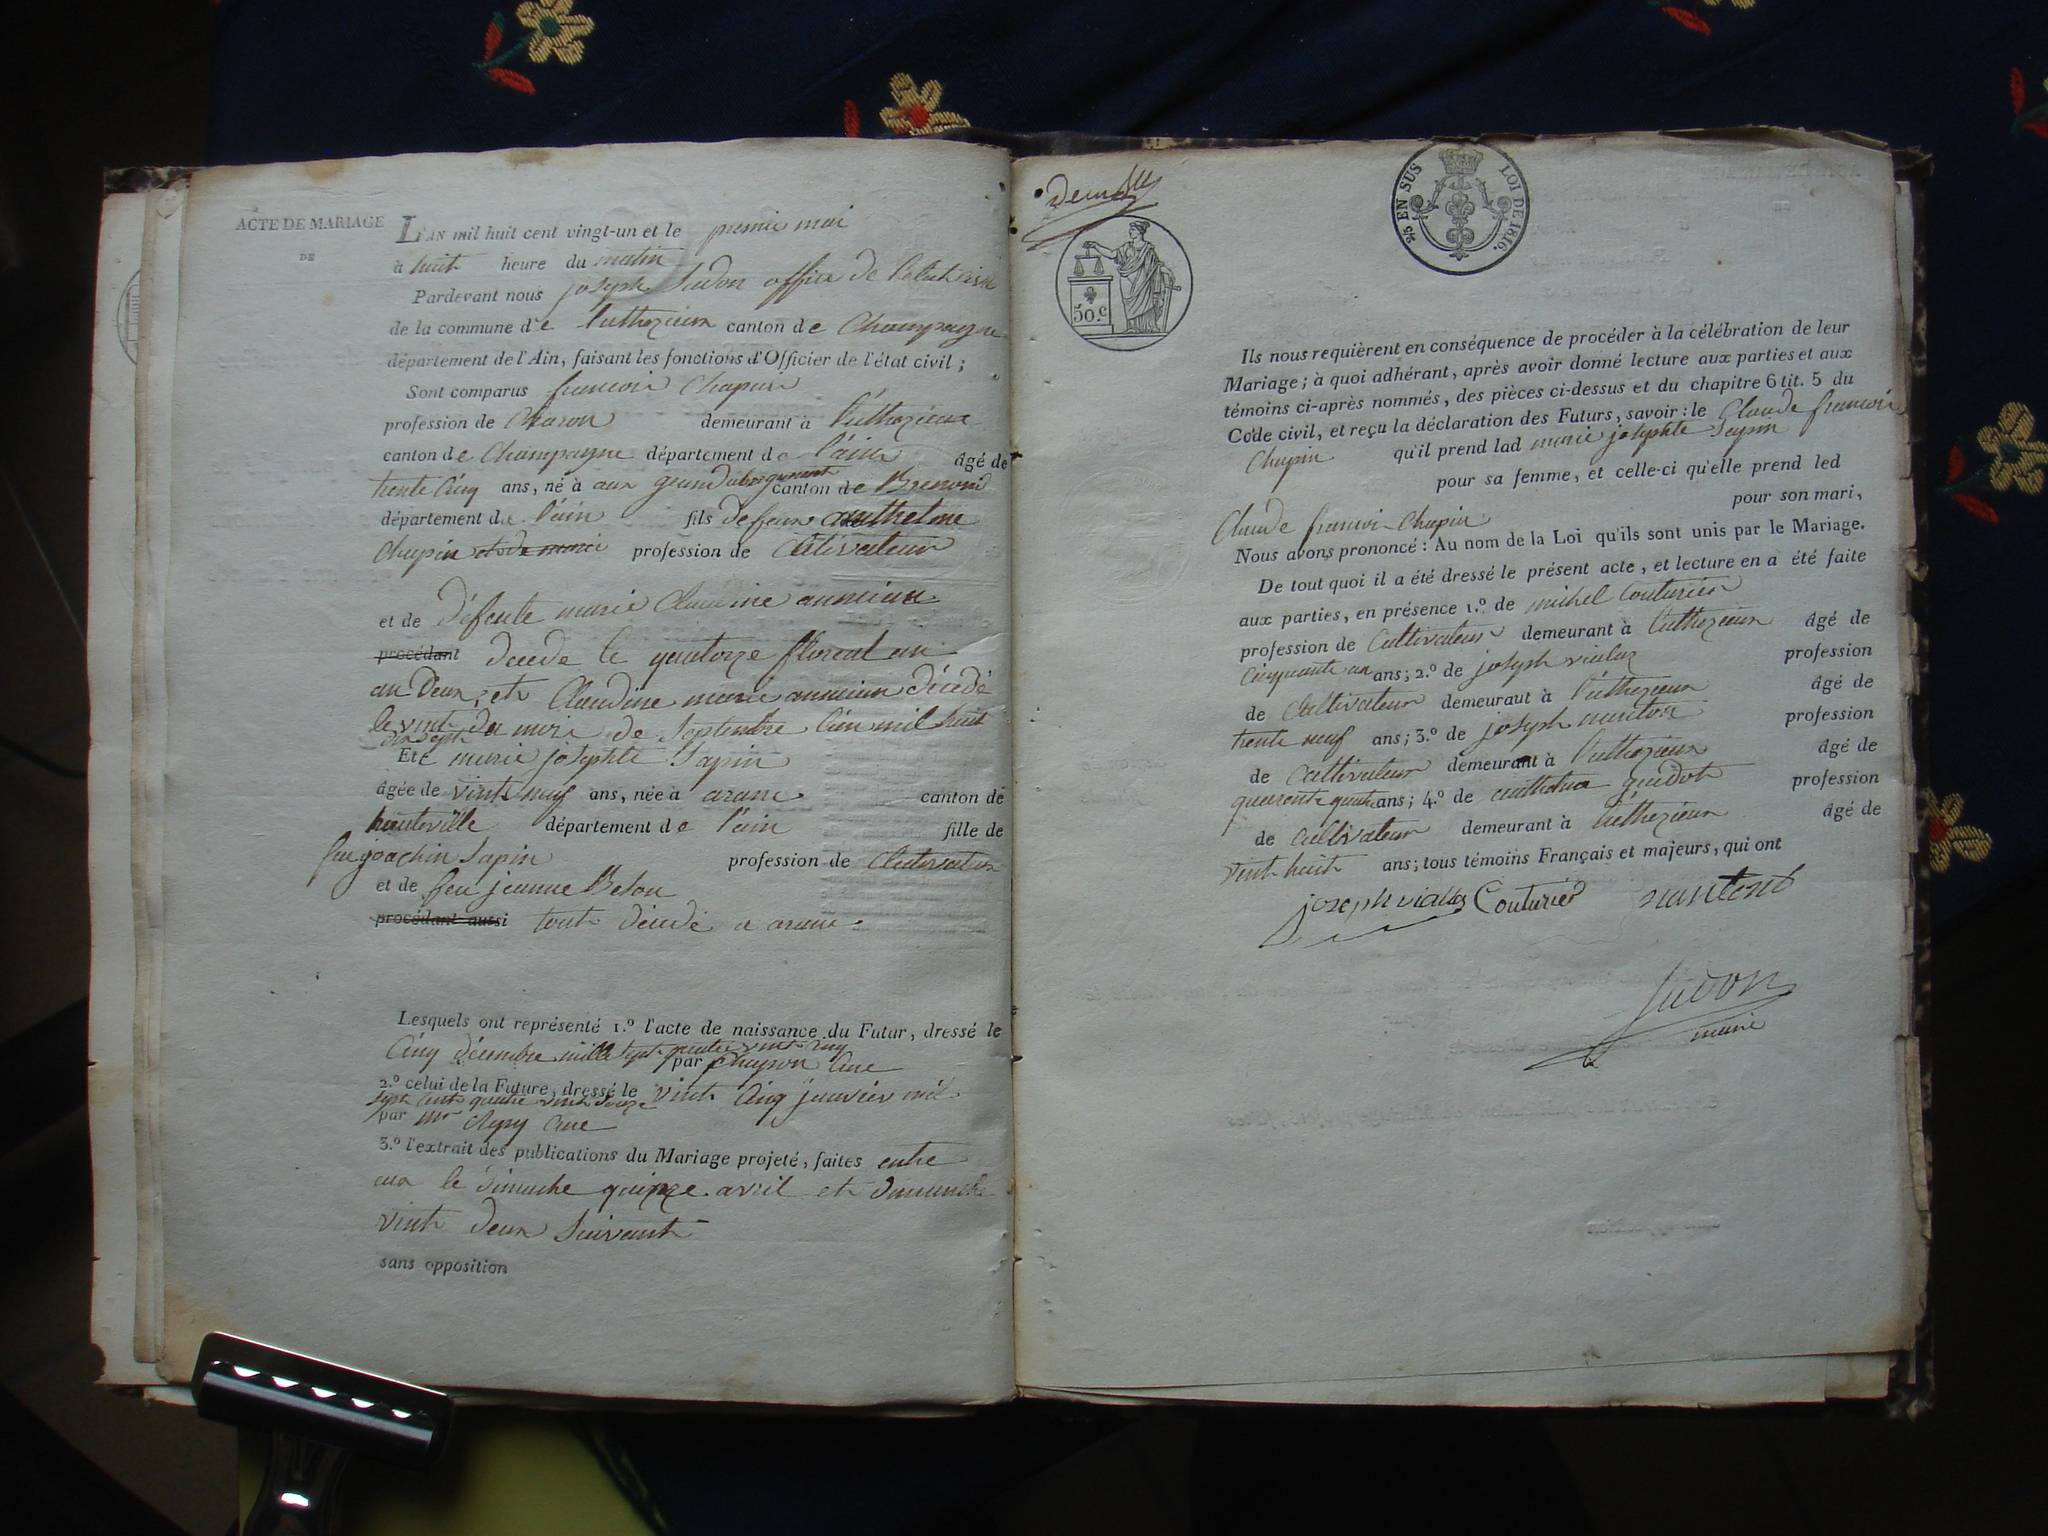 ACTE DE MARIAGE
DE
L'AN mil huit cent vingt-un et le premie mai
à huit heure du matin
Pardevant nous joseph Sudon office de l'etat civil
de la commune de luthezieux canton de Champagne
département de l'Ain, faisant les fonctions d'Officier de l'état civil ;
Sont comparus francois Chapuin
profession de Charon demeurant à luthezieux
canton de Champagne département de l'ain âgé de
trente cinq ans, né à aux grand abergement canton de Brenond
département de l'ain fils de feu anthelme
Chapin et de marie profession de Cultivateur
et de défeute marie Claudine
procédant decede le quatorze floreal an
an Deux, et Claudine marie décédé
le vint du mois de Septembre l'an mil huit
dix sept
Et marie josephte Sapin
âgée de vint neuf ans, née à aranc canton de
hauteville département de l'ain fille de
feu joachin Sapin profession de Cultivateur
et de feu jeanne
procédant aussi tout décédé a aranc
Lesquels ont représenté 1.º l'acte de naissance du Futur, dressé le
Cinq décembre mille sept quatre vint cinq par Cure
2.º celui de la Future, dressé le vint Cinq janvier mil
sept cent quatre vint douze
par Mr Cure
3.º l'extrait des publications du Mariage projeté, faites entre
eux le dimache quinze avril et dimanche
vint deux Suivant
sans opposition
2/5 EN SUS LOI DE 1816.
50.c
Ils nous requièrent en conséquence de procéder à la célébration de leur
Mariage ; à quoi adhérant, après avoir donné lecture aux parties et aux
témoins ci-après nommés, des pièces ci-dessus et du chapitre 6 tit. 5 du
Code civil, et reçu la déclaration des Futurs, savoir : le Claude francois
Chapin qu'il prend lad marie josephte Sapin
pour sa femme, et celle-ci qu'elle prend led
pour son mari,
Claude francoi Chapin
Nous avons prononcé : Au nom de la Loi qu'ils sont unis par le Mariage.
De tout quoi il a été dressé le présent acte, et lecture en a été faite
aux parties, en présence 1.º de michel Couturier
profession de Cultivateur demeurant à luthezieux âgé de
Cinquante un ans ; 2.º de joseph profession
de Cultivateur demeuraut à luthezieux âgé de
trente neuf ans ; 3.º de joseph profession
de Cultivateur demeurant à luthezieux âgé de
quarente quatre ans ; 4.º de anthelme guidot profession
de Cultivateur demeurant à luthezieux âgé de
vint huit ans ; tous témoins Français et majeurs, qui ont
joseph Couturier nantont
Sudon
maire